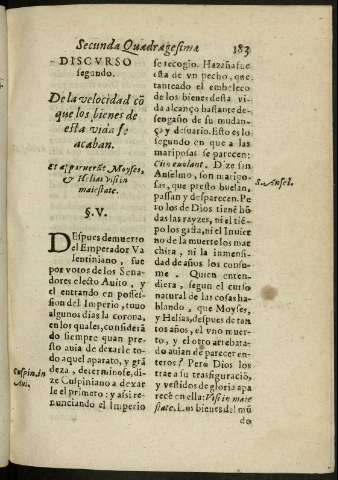 Secunda Quadragesima
183
DISCVRSO
segundo.
De la velocidad cõ
que los bienes de
esta vida se
acaban.
Et apparuerũt Moyses,
& Helias visi in
maiestate.
§. V.
DEspues de muerto
el Emperador Va
lentiniano, fue
por votos de los Sena
dores electo Auito, y
el entrando en posses-
sion del Imperio, tuuo
algunos dias la corona,
en los quales, considerã
do siempre quan pres-
to auia de dexarle to-
do aquel aparato, y grã
deza, determinose, di-
ze Cuspiniano a dexar
le el primero: y assi re-
nunciando el Imperio
Cuspin. in
Aui.
se recogio. Hazaña fue
esta de vn pecho, que
tanteado el embeleco
de los bienes desta vi-
da alcanço bastante de-
sengaño de su mudan-
ça y desuario. Esto es lo
segundo en que a las
mariposas se parecen:
Cito euolant. Dize san
Anselmo, son maripo-
sas, que presto buelan,
passan y desparecen. Pe
ro los de Dios tienẽ hõ
das las rayzes, ni el tiẽ-
po los gasta, ni el Inuier
no de la muerte los mar
chira, ni la inmensi-
dad de años los consu-
me. Quien enten-
diera, segun el curso
natural de las cosas ha-
blando, que Moyses,
y Helias, despues de tan
tos años, el vno muer-
to, y el otro arrebata-
do auian de parecer en-
teros? Pero Dios los
trae a su trasfiguració,
y vestidos de gloria apa
recẽ en ella: Visi in maie
state. Los bienes del mũ
do
S. Ansel.